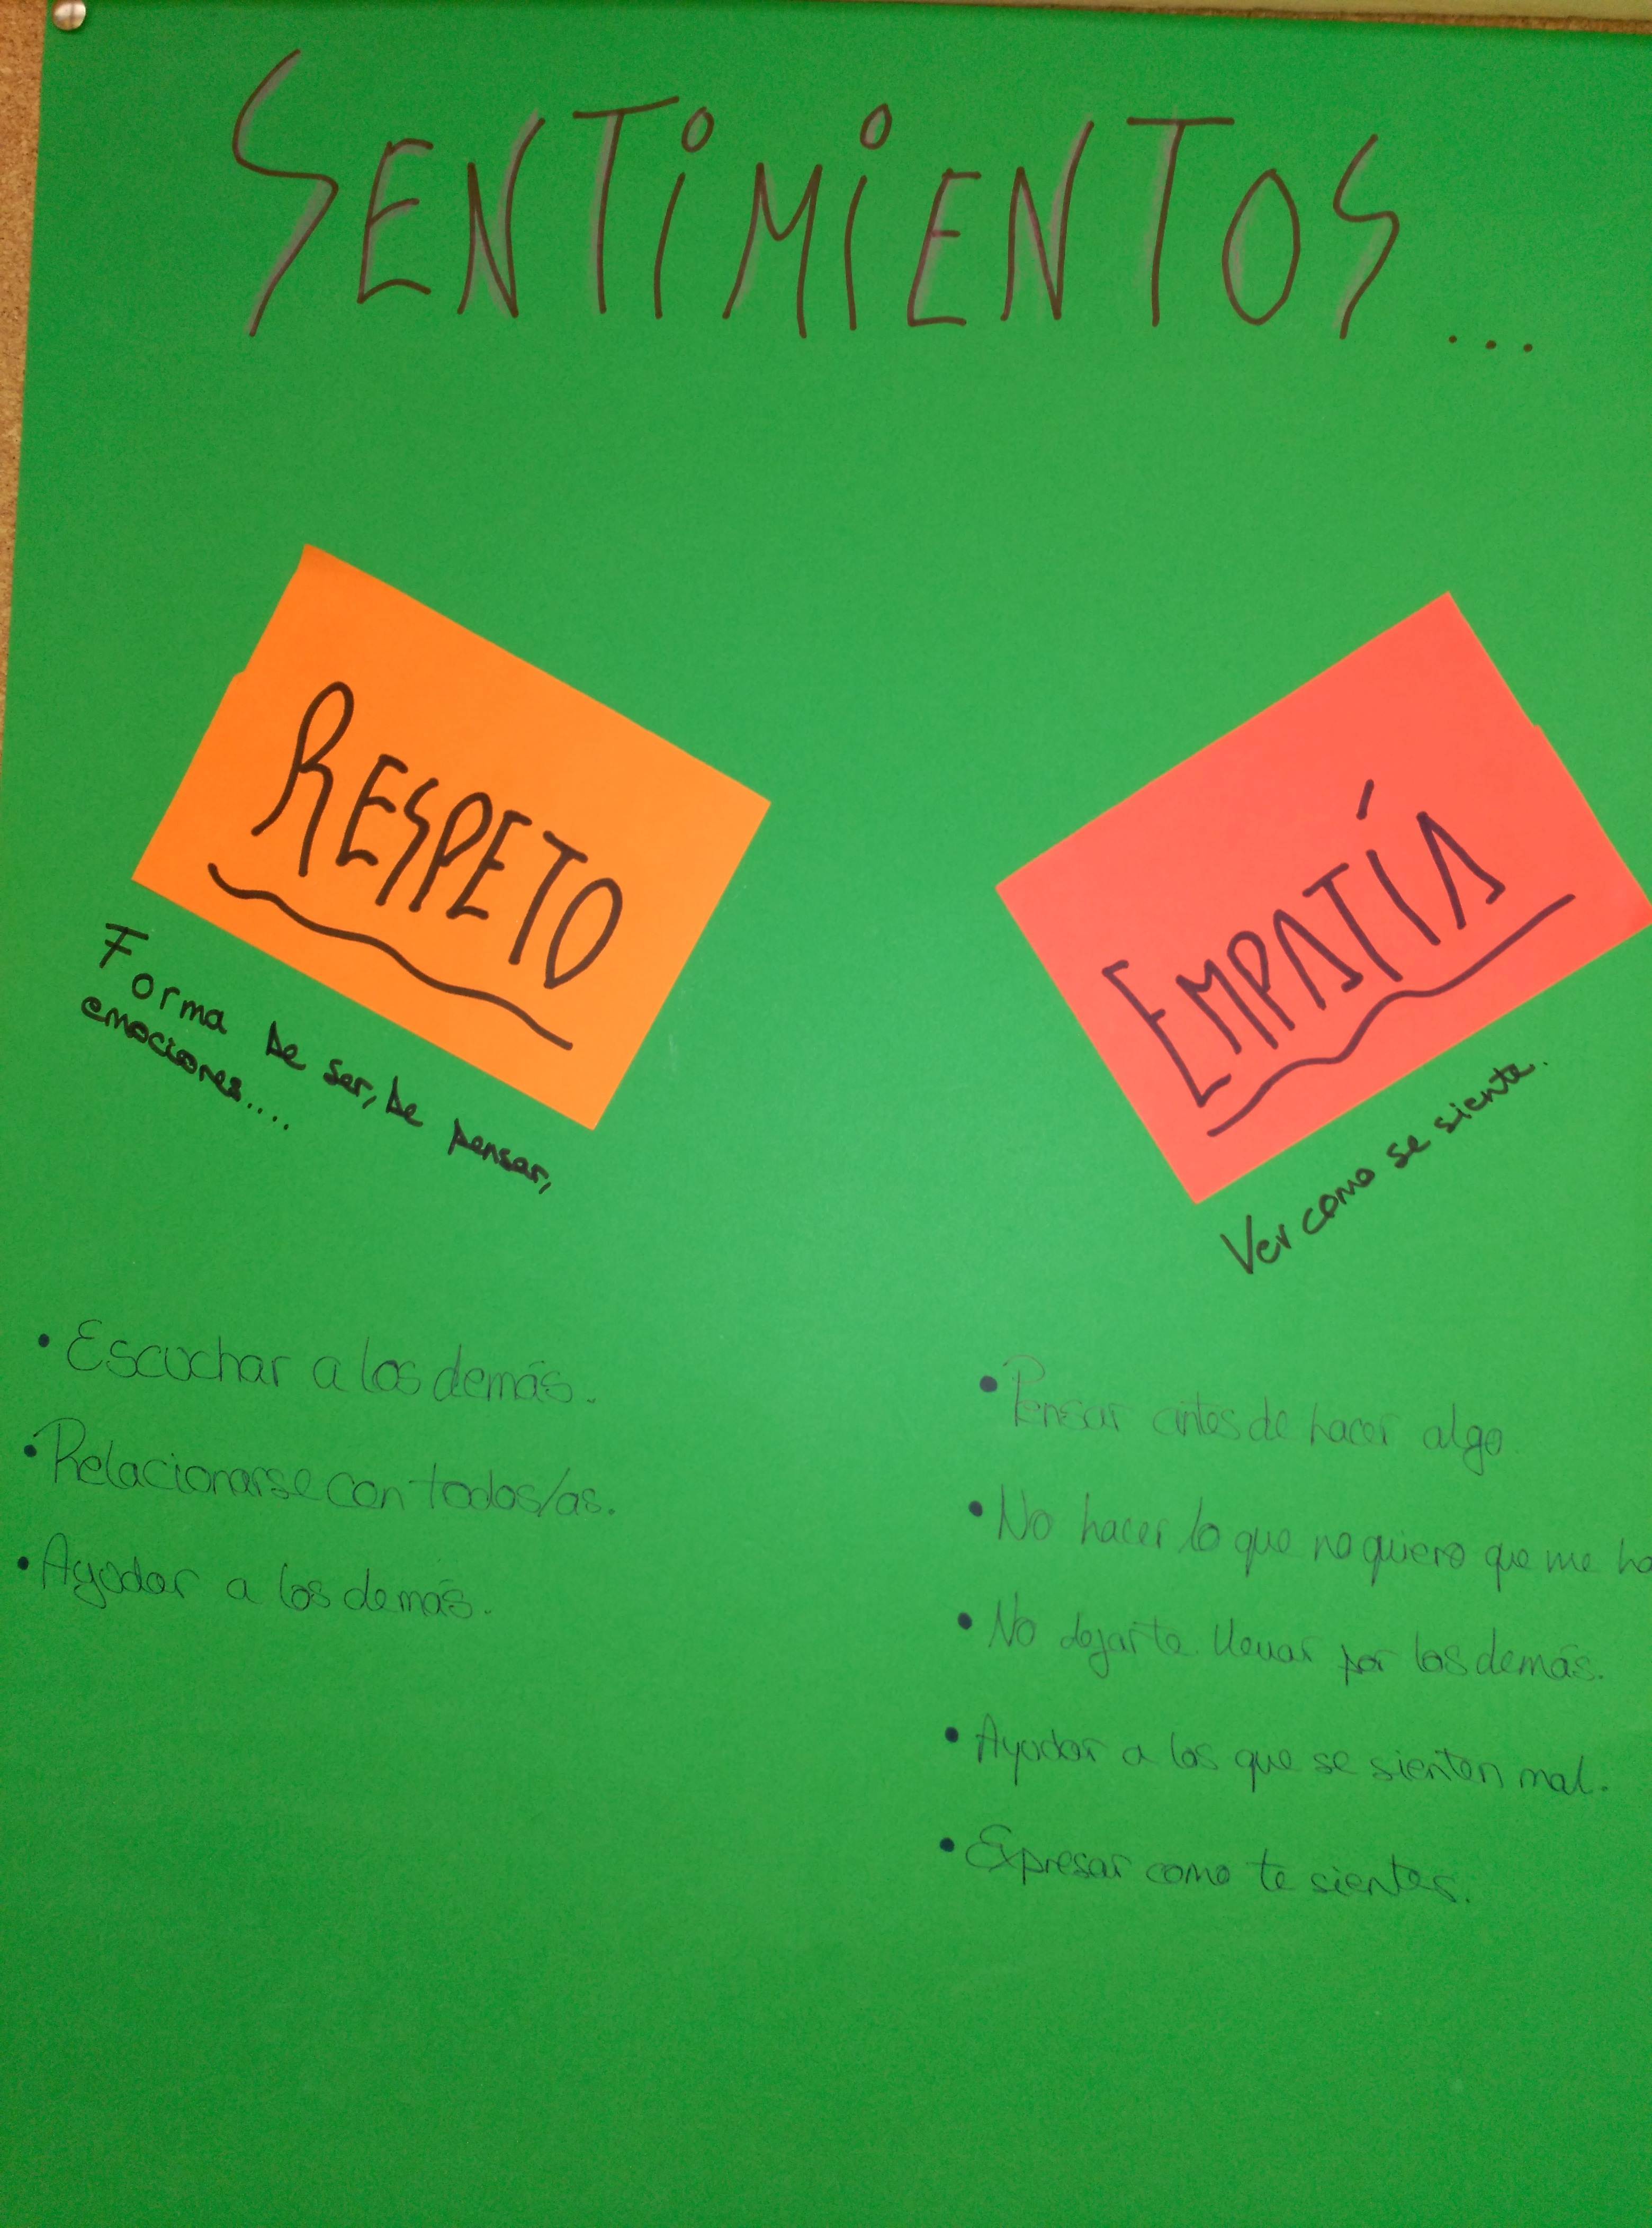 SENTIMIENTOS...
RESPETO
Forma de ser, de pensar,
emociones....
• Escuchar a los demás.
• Relacionarse con todos/as.
• Ayudar a los demás.
EMPATÍA
Ver como se siente.
• Pensar antes de hacer algo
• No hacer lo que no quiero que me ha
• No dejarte llevar por los demás.
• Ayudar a los que se sienten mal.
• Expresar como te sientes.